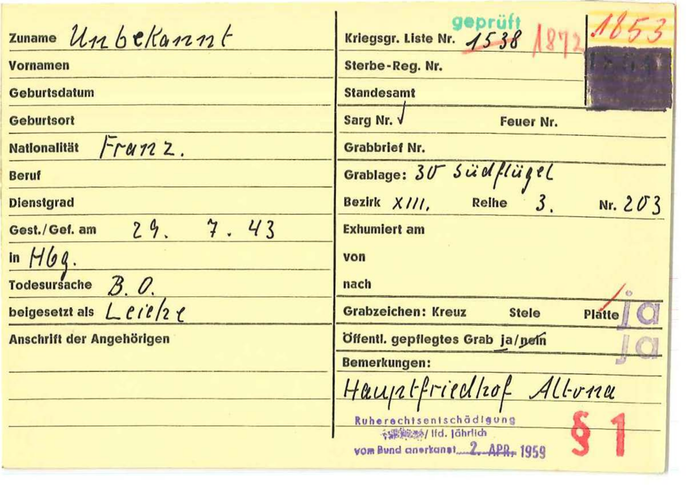 Zuname Unbekannt
Vornamen
Geburtsdatum
Geburtsort
Nationalität Franz.
Beruf
Dienstgrad
Gest./Gef. am 29. 7. 43
in Hbg.
Todesursache B.O.
beigesetzt als Leiche
Anschrift der Angehörigen
geprüft
Kriegsgr. Liste Nr. 1538 1872 1853
Sterbe-Reg. Nr.
Standesamt
Sarg Nr. Feuer Nr.
Grabbrief Nr.
Grablage: 30 Südflügel
Bezirk XIII. Reihe 3. Nr. 203
Exhumiert am
von
nach
Grabzeichen: Kreuz Stele Platte ja
Öffentl. gepflegtes Grab ja/nein ja
Bemerkungen:
Hauptfriedhof Altona
Ruherechtsentschädigung
/lfd. jährlich
vom Bund anerkannt 2. APR. 1959
§ 1